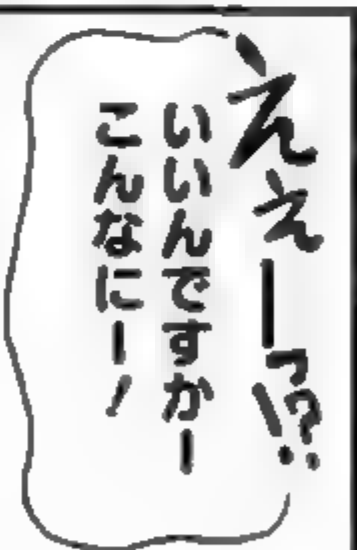 ええーっ!?
いいんですかー
こんなにー!